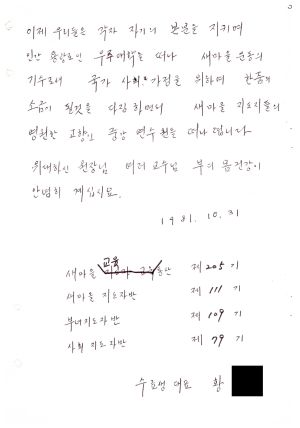 이제 우리들은 각자 자기의 본분을 지키며
인간 용광로인 부후대학을 떠나 새마을운동의
기수로서 국가 사회 가정을 위하여 한줌의
소금이 될것을 다짐하면서 새마을 지도자들의
영원한 고향인 중앙 연수원을 떠나렵니다
위대하신 원장님 여러 교수님 부디 몸건강히
안녕히 계십시요.
1981. 10. 31
교육
새마을 통신 제 205 기
새마을 지도자반 제 111 기
부녀지도자반 제 109 기
사회 지도자반 제 79 기
수료생 대표 황